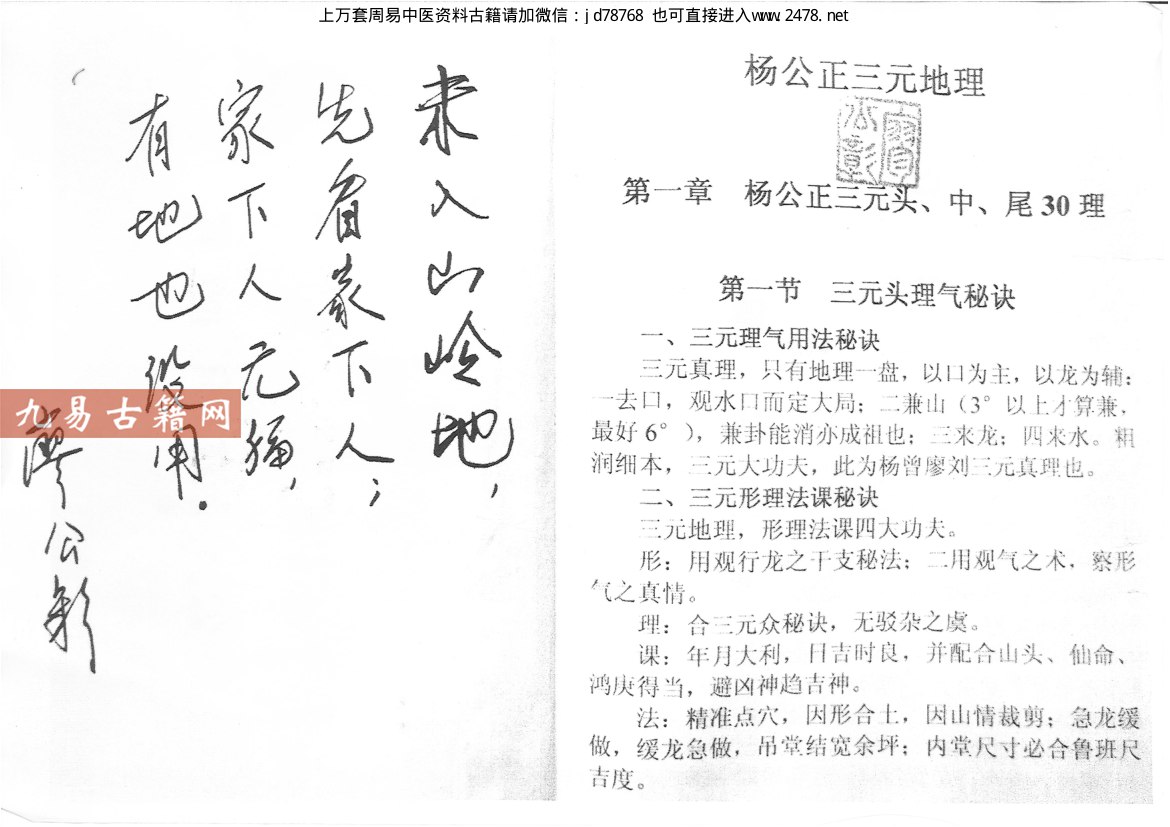 上万套周易中医资料古籍请加微信：jd78768 也可直接进入www.2478.net
来入山岭地，
先看家下人；
家下人无福，
有地也没用。
廖公彰
九易古籍网
杨公正三元地理
第一章 杨公正三元头、中、尾30理
第一节 三元头理气秘诀
一、三元理气用法秘诀
三元真理，只有地理一盘，以口为主，以龙为辅：
一去口，观水口而定大局；二兼山（3°以上才算兼，
最好6°），兼卦能消亦成祖也；三来龙；四来水。粗
润细本，三元大功夫，此为杨曾廖刘三元真理也。
二、三元形理法课秘诀
三元地理，形理法课四大功夫。
形：用观行龙之干支秘法；二用观气之术，察形
气之真情。
理：合三元众秘诀，无驳杂之虞。
课：年月大利，日吉时良，并配合山头、仙命、
鸿庚得当，避凶神趋吉神。
法：精准点穴，因形合土，因山情裁剪；急龙缓
做，缓龙急做，吊堂结宽余坪；内堂尺寸必合鲁班尺
吉度。